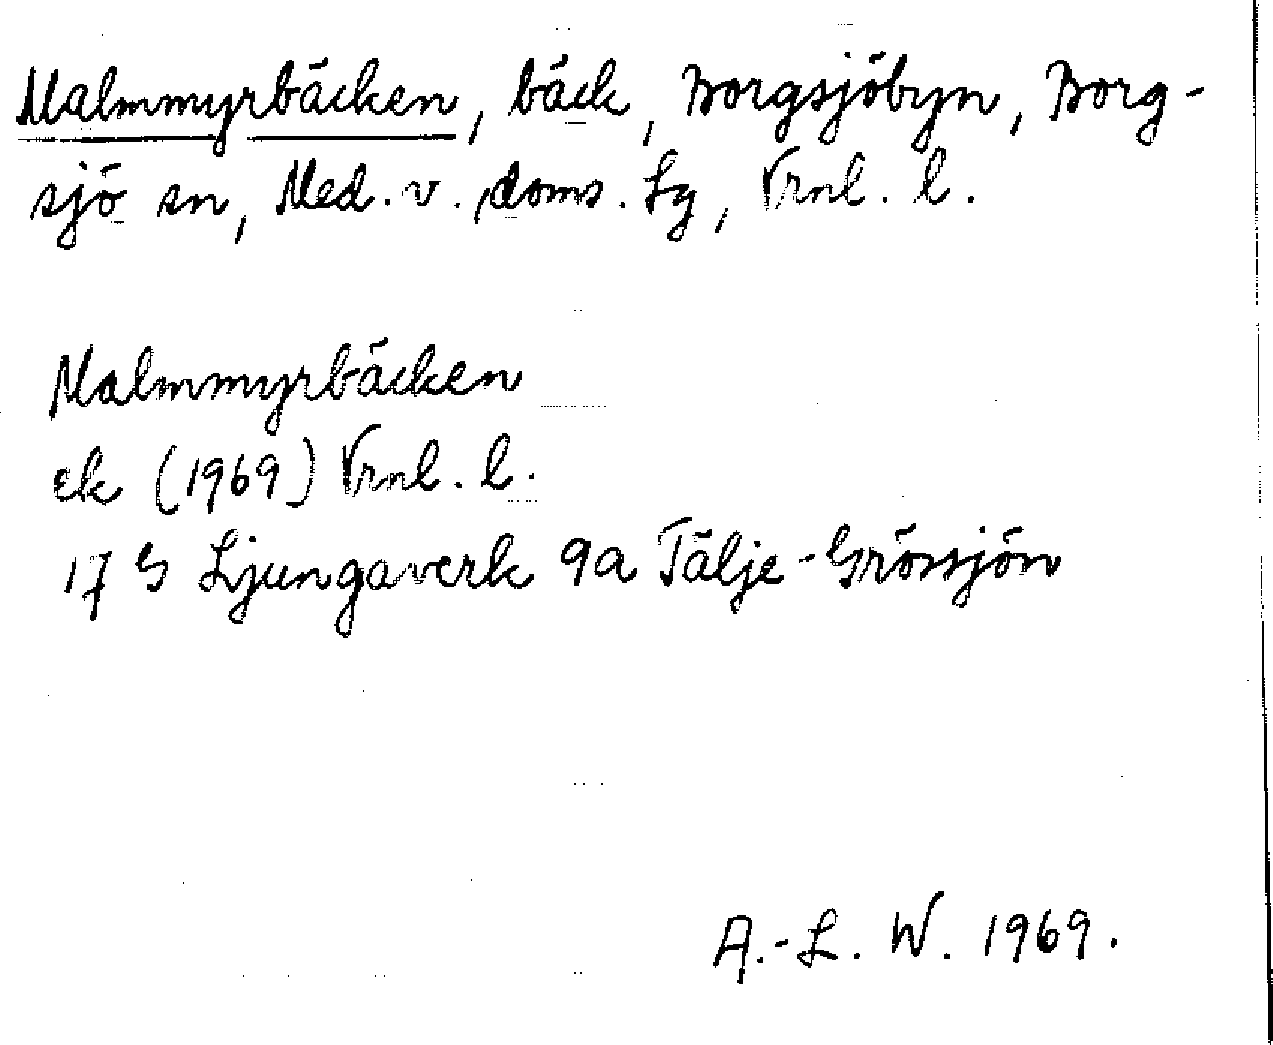 Malmmyrbäcken, bäck, Borgsjöbyn, Borg-
sjö sn, Med. v. doms. Lg, Vrnl. l.
Malmmyrbäcken
ek (1969) Vrnl. l.
17 G Ljungaverk 9a Tälje-Grössjön
A.-L. W. 1969.